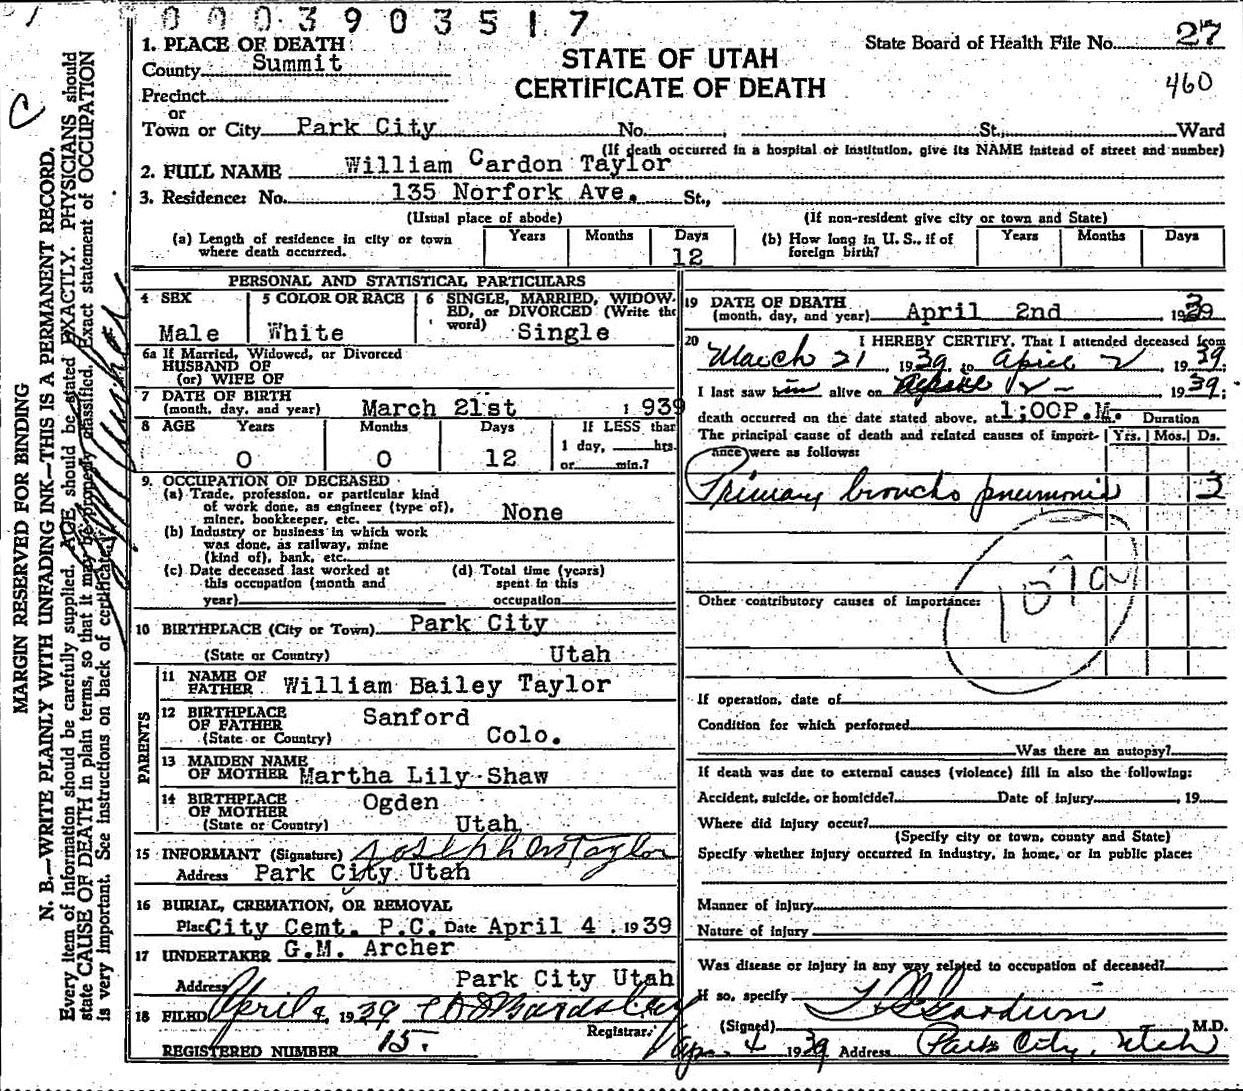 0003903517
STATE OF UTAH
CERTIFICATE OF DEATH
State Board of Health File No. 27
460
1. PLACE OF DEATH:
County Summit
Precinct
or
Town or City Park City No. , St., Ward
(If death occurred in a hospital or institution, give its NAME instead of street and number)
2. FULL NAME William Cardon Taylor
3. Residence: No. 135 Norfork Ave. St.,
(Usual place of abode) (If non-resident give city or town and State)
(a) Length of residence in city or town where death occurred. Years Months Days 12
(b) How long in U. S., if of foreign birth? Years Months Days
PERSONAL AND STATISTICAL PARTICULARS
4 SEX Male
5 COLOR OR RACE White
6 SINGLE, MARRIED, WIDOW-
ED, or DIVORCED (Write the
word) Single
6a If Married, Widowed, or Divorced
HUSBAND OF
(or) WIFE OF
7 DATE OF BIRTH
(month, day, and year) March 21st 1939
8 AGE Years Months Days If LESS than
0 0 12 1 day, hrs.
or min.?
9. OCCUPATION OF DECEASED
(a) Trade, profession, or particular kind
of work done, as engineer (type of),
miner, bookkeeper, etc. None
(b) Industry or business in which work
was done, as railway, mine
(kind of), bank, etc.
(c) Date deceased last worked at
this occupation (month and
year)
(d) Total time (years)
spent in this
occupation
10 BIRTHPLACE (City or Town) Park City
(State or Country) Utah
PARENTS
11 NAME OF
FATHER William Bailey Taylor
12 BIRTHPLACE
OF FATHER Sanford
(State or Country) Colo.
13 MAIDEN NAME
OF MOTHER Martha Lily Shaw
14 BIRTHPLACE
OF MOTHER Ogden
(State or Country) Utah
15 INFORMANT (Signature) Joseph M Taylor
Address Park City Utah
16 BURIAL, CREMATION, OR REMOVAL
Place City Cemt. P.C. Date April 4 1939
17 UNDERTAKER G.M. Archer
Address Park City Utah
18 FILED April 4, 1939
Registrar.
REGISTERED NUMBER 15.
19 DATE OF DEATH
(month, day, and year) April 2nd 1939
20 I HEREBY CERTIFY, That I attended deceased from
March 21, 1939 to April 2, 1939.
I last saw him alive on 2 1939;
death occurred on the date stated above, at 1:00P.M. Duration
The principal cause of death and related causes of import- Yrs. Mos. Ds.
ance were as follows:
Primary broncho pneumonia 3
107a
Other contributory causes of importance:
If operation, date of
Condition for which performed
Was there an autopsy?
If death was due to external causes (violence) fill in also the following:
Accident, suicide, or homicide? Date of injury , 19
Where did injury occur?
(Specify city or town, county and State)
Specify whether injury occurred in industry, in home, or in public place:
Manner of injury
Nature of injury
Was disease or injury in any way related to occupation of deceased?
If so, specify
(Signed) M.D.
Apr. 4 1939 Address Park City, Utah
MARGIN RESERVED FOR BINDING
N. B.—WRITE PLAINLY WITH UNFADING INK—THIS IS A PERMANENT RECORD.
Every item of information should be carefully supplied. AGE should be stated EXACTLY. PHYSICIANS should
state CAUSE OF DEATH in plain terms, so that it may be properly classified. Exact statement of OCCUPATION
is very important. See instructions on back of certificate.